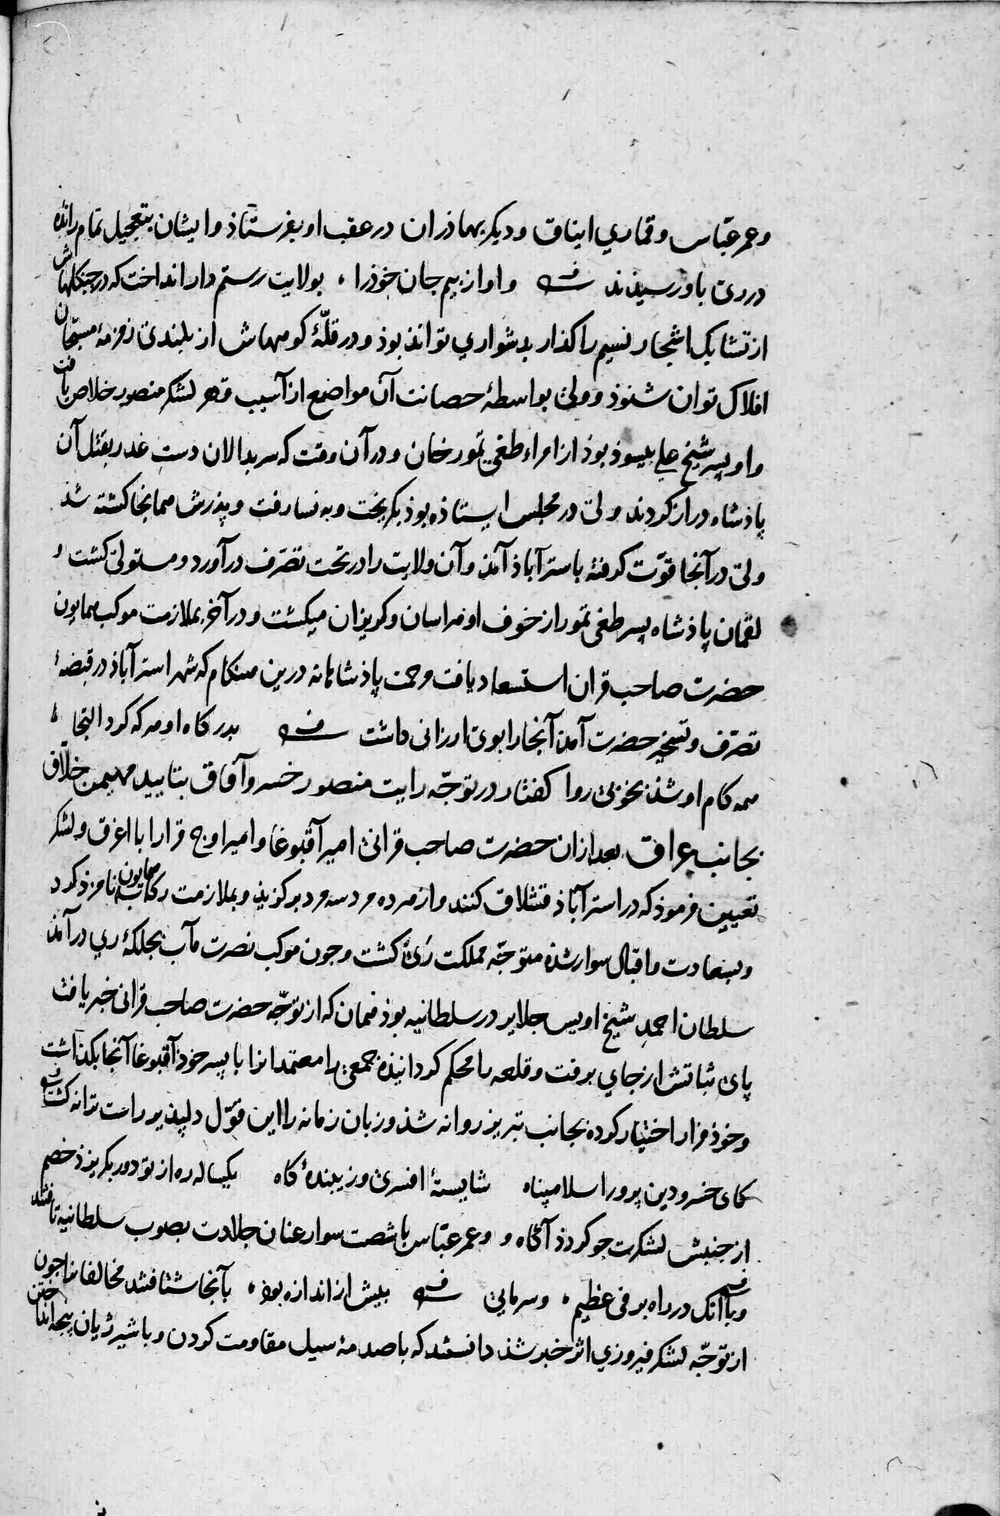 وعمر عبّاس وقماري ایناق ودیکر بهاذران در عقب او بفرستاذ وایشان بتعجیل تمام رانده
در ری باو رسیذند و او از بیم جان خوذرا بولایت رستم دار انداخت که در جنکلهاش
از تشابک اشجار نسیم را کذار بدشواري تواند بوذ و در قلّهٔ کوههاش از بلندی زمزمهٔ مسبّحان
افلاک توان شنوذ وولی بواسطهٔ حصانت آن مواضع از آسیب قهر لشکر منصور خلاص یافت
واو پسر شیخ علي بیسوذ بوذ از امراء طغي تمور خان ودر آن وقت که سربدالان دست غدر بقتل آن
پاذشاه دراز کردند ولی در مجلس ایستاذه بوذ بکریخت وبه نسا رفت وپذرش همانجا کشته شذ
ولی در آنجا قوّت کرفته باستراباذ آمذ وآن ولایت را در تحت تصرّف درآورد ومستولی کشت و
لقمان پاذشاه پسر طغي تمور از خوف او هراسان وکریزان میکشت ودر آخر بملازمت موکب همایون
حضرت صاحب قران استسعاد یافت ورحمت پاذشاهانه درین هنکام که شهر استراباذ در قبضهٔ
تصرّف وتسخیر حضرت آمذ آنجا را بوی ارزانی داشت بدرکاه او هر که کرد التجا
همه کام او شذ بخوبی روا کفتار در توجّه رایت منصور خسرو آفاق بتایید مهیمن خلّاق
بجانب عراق بعد ازان حضرت صاحب قرانی امیر آقبوغا وامیر اوچ قرا را با اغرق ولشکر
تعیین فرموذ که در استراباذ قشلاق کنند واز هر ده مرد سه مرد برکزیذ وبملازمت رکاب همایون نامزذ کرد
وبسعادت واقبال سوار شذه متوجّه مملکت ری کشت وچون موکب نصرت مآب بجلکهٔ ري در آمذ
سلطان احمد شیخ اویس جلایر در سلطانیه بوذ همان که از توجّه حضرت صاحب قرانی خبر یافت
پای ثباتش از جاي برفت وقلعه را محکم کردانیذه جمعي را معتمدانرا با پسر خوذ آقبوغا آنجا بکذاشت
وخوذ فرار اختیار کرده بجانب تبریز روانه شذ وزبان زمانه را این قول دلپذیر راست ترانه کشت
کای خسرو دین پرور اسلام پناه شایستهٔ افسری وزیبندهٔ کاه یکساله ره از تو دور بکریزذ خصم
از جنبش لشکرت چو کردذ آکاه وعمر عبّاس با شصت سوار عنان جلادت بصوب سلطانیه تافتند
وبا آنک در راه برفی عظیم وسرمایی بیش از اندازه بوذ بآنجا شتافتند مخالفانرا چون
از توجّه لشکر فیروزي اثر خبر شذ دانستند که با صدمهٔ سیل مقاومت کردن وبا شیر ژیان پنجه انداختن